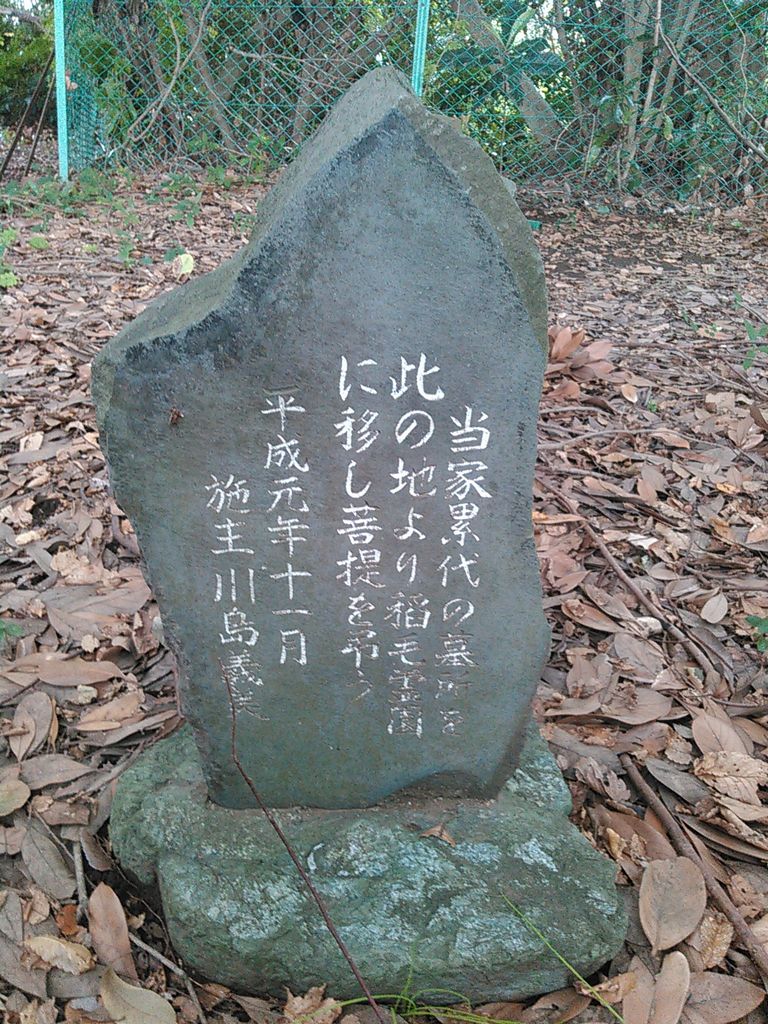 当家累代の墓所を
此の地より稲毛霊園
に移し菩提を弔う
平成元年十一月
施主川島義美